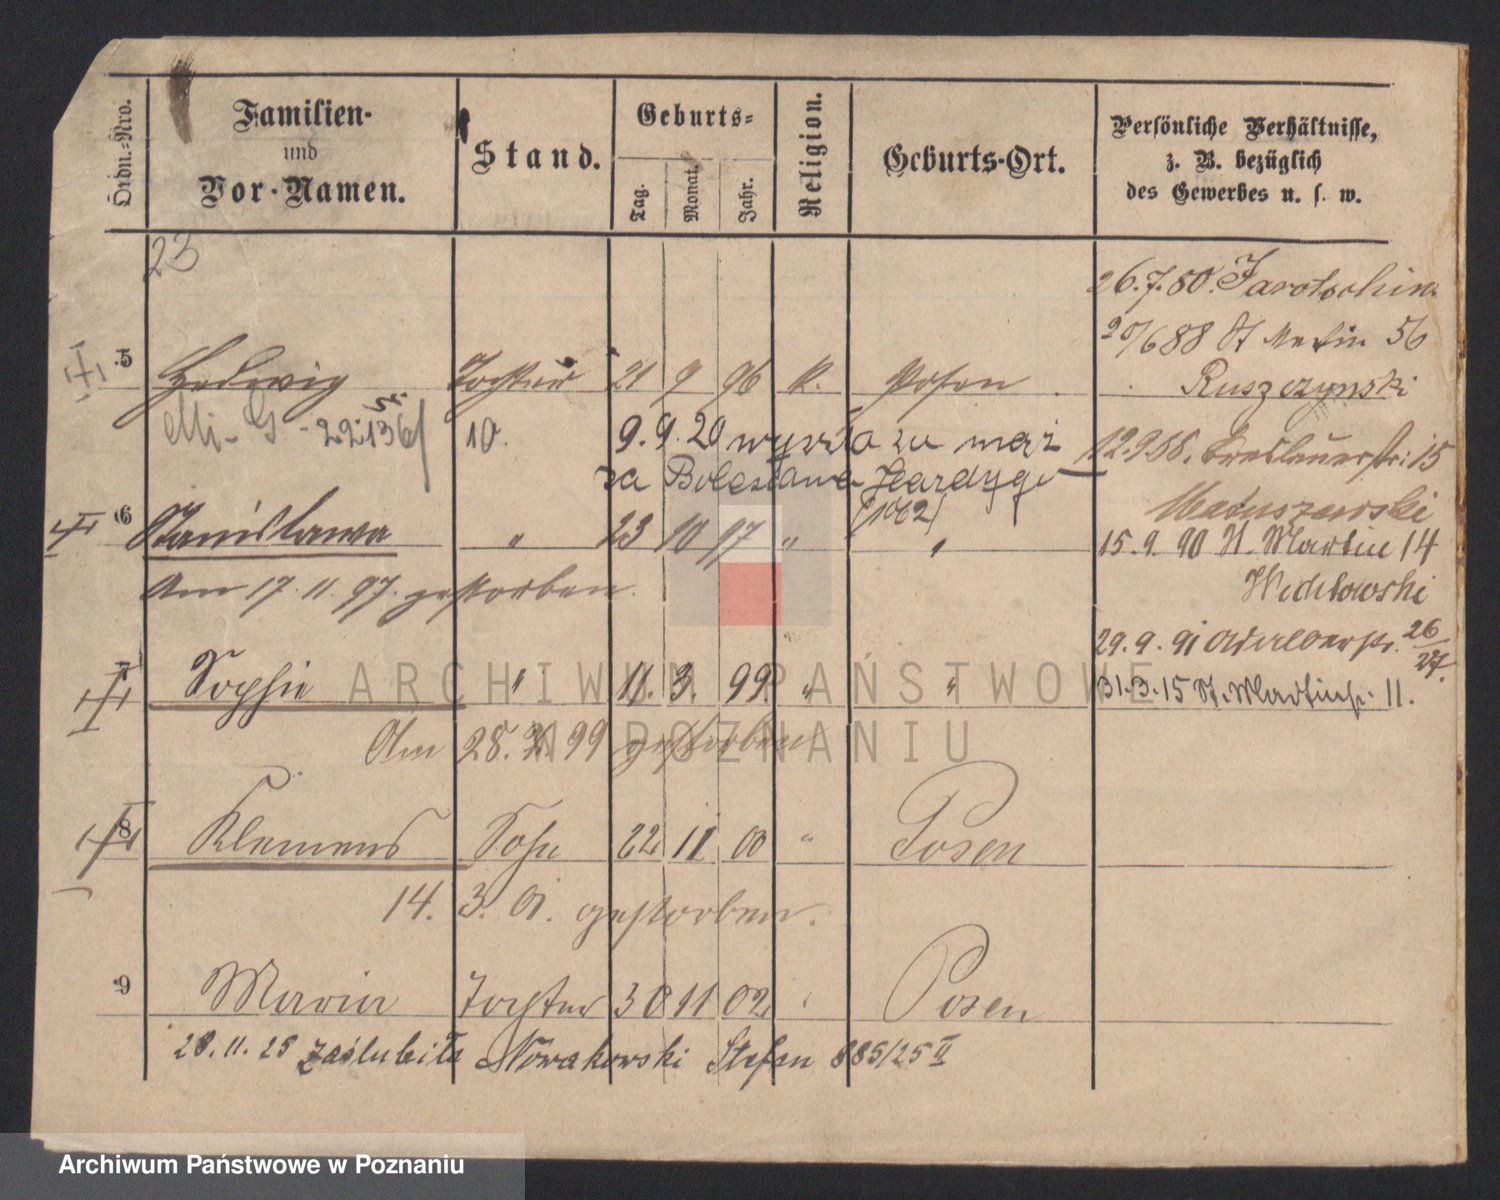 Ordn.-Nro.
Familien-
und
Vor-Namen.
Stand.
Geburts-
Tag.
Monat.
Jahr.
Religion.
Geburts-Ort.
Persönliche Verhältnisse,
z. B. bezüglich
des Gewerbes u. s. w.
23
26.7.80. Jarotschin.
20/6 88 St Martin 56
5 Hedwig Tochter 21 9 96 k. Posen
Ruszczynski
10. 9.9.20 wyszła za mąż
12.9.88. Breslauerstr. 15
za Bolesława Hardygo
(1062)
Matuszewski
6 Stanislawa " 23 10 97 " "
15.9.90 St. Martin 14
Am 17.11.97. gestorben.
29.9.91 Adalbertstr. 26/27.
7 Sophie " 11. 3. 99. " "
31.3.15 St. Martinstr. 11.
Am 28. 99 gestorben
8 Klemens Sohn 22 11 00 " Posen
14. 3. 01. gestorben.
9 Maria Tochter 30 11 02 " Posen
28.11.25 zaślubiła Nowakowski Stefan 885/25 II
ARCHIWUM PAŃSTWOWE
W POZNANIU
Archiwum Państwowe w Poznaniu